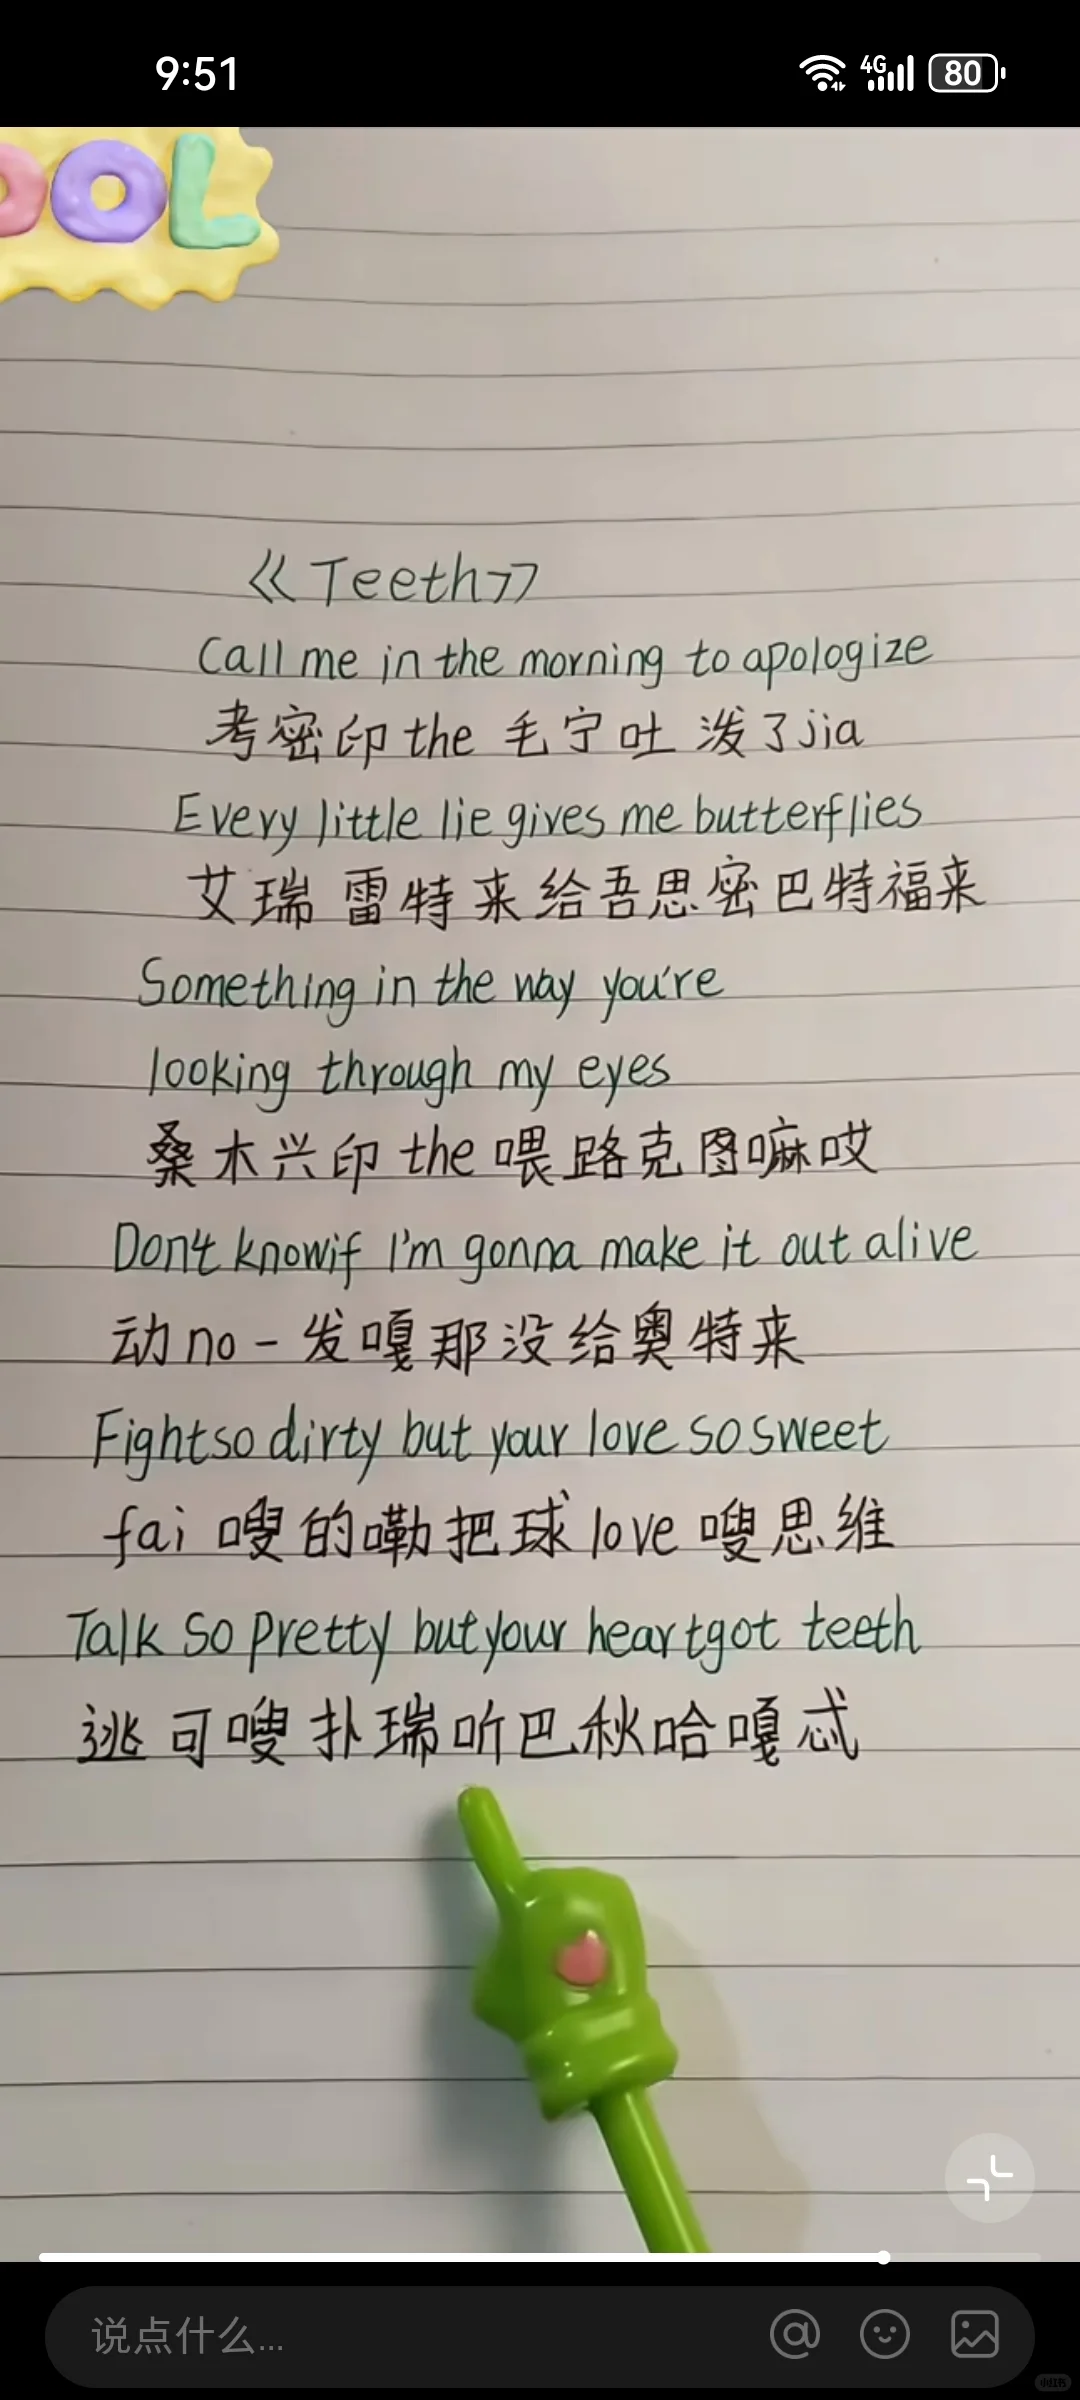 9:51
4G
80
OOL
《Teeth》
Call me in the morning to apologize
考密印the毛宁吐 泼了jia
Every little lie gives me butterflies
艾瑞雷特来给吾思密巴特福来
Something in the way you're
looking through my eyes
桑木兴印the喂路克图嘛哎
Don't knowif I'm gonna make it out alive
动no一发嘎那没给奥特来
Fightso dirty but your love so sweet
fai嗖的嘞把球love嗖思维
Talk so pretty butyour heartgot teeth
逃可嗖扑瑞听巴秋哈嘎忒
说点什么...